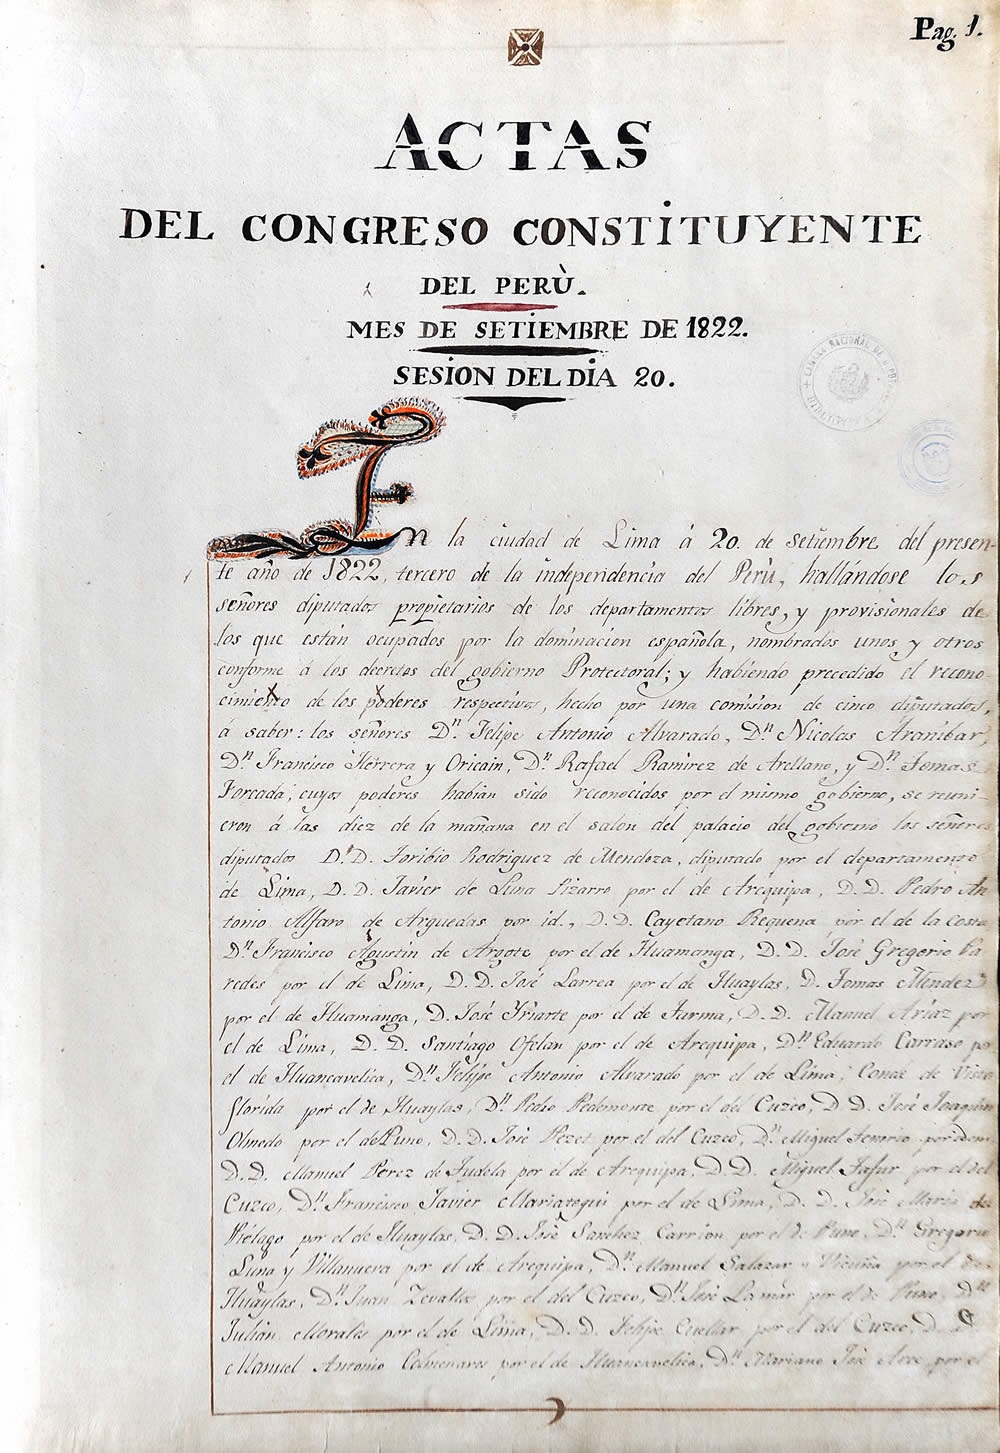 Pag. 1.
ACTAS
DEL CONGRESO CONSTITUYENTE
DEL PERÙ.
MES DE SETIEMBRE DE 1822.
SESION DEL DIA 20.
En la ciudad de Lima á 20. de setiembre del presen-
te año de 1822, tercero de la independencia del Perù, hallándose los
señores diputados propietarios de los departamentos libres, y provisionales de
los que están ocupados por la dominacion española, nombrados unos y otros
conforme á los decretos del gobierno Protectoral; y habiendo precedido el recono-
cimiento de los poderes respectivos, hecho por una comision de cinco diputados,
á saber: los señores Dn. Felipe Antonio Alvarado, Dn. Nicolas Aranibar,
Dn. Francisco Herrera y Oricain, Dn. Rafael Ramirez de Arellano, y Dn. Tomas
Forcada; cuyos poderes habian sido reconocidos por el mismo gobierno, se reuni-
eron á las diez de la mañana en el salon del palacio del gobierno los señores
diputados D. D. Toribio Rodriguez de Mendoza, diputado por el departamento
de Lima, D. D. Javier de Luna Pizarro por el de Arequipa, D. D. Pedro An-
tonio Alfaro de Arguedas por id., D. D. Cayetano Requena por el de la Costa
Dn. Francisco Agustin de Argote por el de Huamanga, D. D. José Gregorio Pa
redes por el de Lima, D. D. José Larrea por el de Huaylas, D. Tomas Mendez
por el de Huamanga, D. José Yriarte por el de Tarma, D. D. Manuel Ariaz por
el de Lima, D. D. Santiago Ofelan por el de Arequipa, Dn. Eduardo Carraso por
el de Huancavelica, Dn. Felipe Antonio Alvarado por el de Lima, Conde de Vista
florida por el de Huaylas, Dn. Pedro Pedemonte por el del Cuzco, D. D. José Joaquin
Olmedo por el de Puno, D. D. José Pezet por el del Cuzco, Dn. Miguel Tenorio por idem,
D. D. Manuel Perez de Tudela por el de Arequipa, D. D. Miguel Tafur por el del
Cuzco, Dn. Francisco Javier Mariategui por el de Lima, D. D. José Maria del
Piélago por el de Huaylas, D. D. José Sanchez Carrion por el de Puno, Dn. Gregorio
Luna y Villanueva por el de Arequipa, Dn. Manuel Salazar y Vicuña por el de
Huaylas, Dn. Juan Zevallos por el del Cuzco, Dn. José Lamar por el de Puno, Dn.
Julian Morales por el de Lima, D. D. Felipe Cuellar por el del Cuzco, D. D.
Manuel Antonio Colmenares por el de Huancavelica, Dn. Mariano José Arce por el